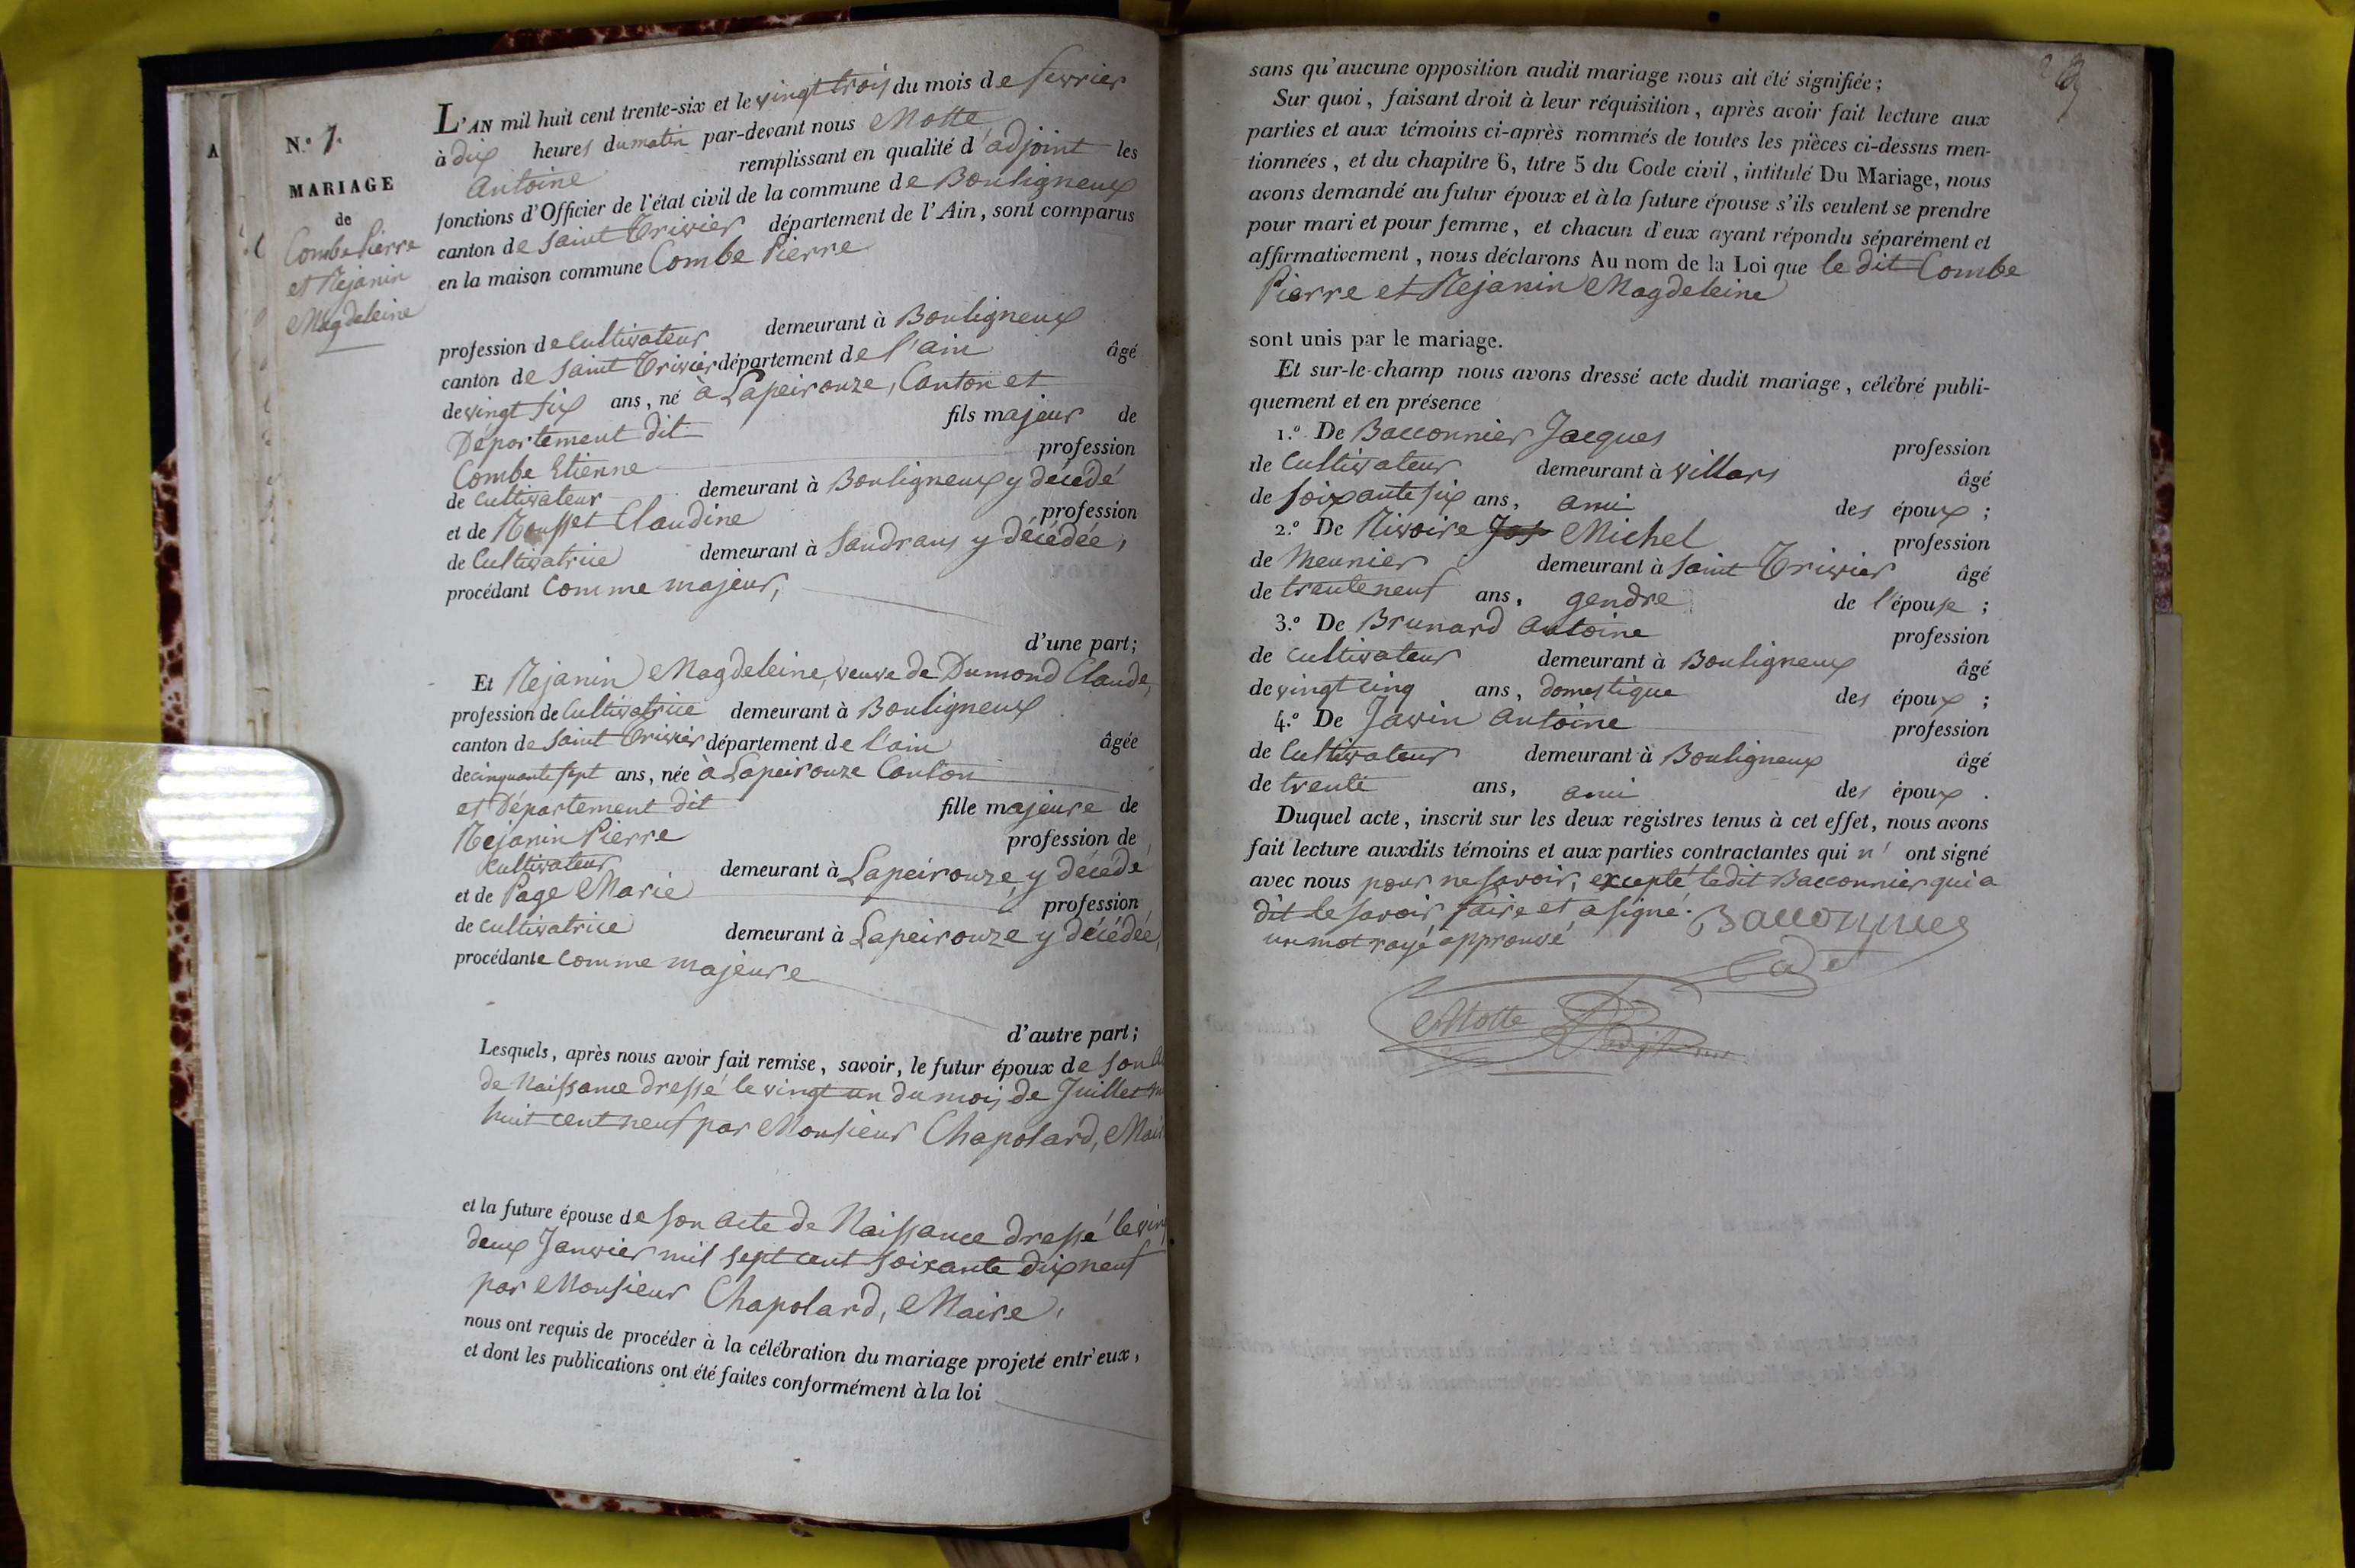 A
N.º 7.
MARIAGE
de
Combe Pierre
et Rejanin
Magdeleine
L'AN mil huit cent trente-six et le vingt trois du mois de fevrier
à dix heures du matin par-devant nous Motte
Antoine remplissant en qualité d'adjoint les
fonctions d'Officier de l'état civil de la commune de Bouligneux
canton de Saint Trivier département de l'Ain, sont comparus
en la maison commune Combe Pierre
profession de Cultivateur demeurant à Bouligneux
canton de Saint Trivier département de l'ain âgé
de vingt six ans, né à Lapeirouze, Canton et
Département dit fils majeur de
Combe Etienne profession
de cultivateur demeurant à Bouligneux y décédé
et de Rousset Claudine profession
de Cultivatrice demeurant à Sandrans y décédée,
procédant comme majeur,
d'une part;
Et Rejanin Magdeleine, veuve de Dumond Claude,
profession de Cultivatrice demeurant à Bouligneux
canton de Saint Trivier département de l'ain âgée
de cinquante sept ans, née à Lapeirouze Canton
et Département dit fille majeure de
Rejanin Pierre profession de
Cultivateur demeurant à Lapeirouze, y décédé
et de Page Marie profession
de cultivatrice demeurant à Lapeirouze y décédée,
procédante comme majeure
d'autre part;
Lesquels, après nous avoir fait remise, savoir, le futur époux de son
de Naissance dressé le vingt un du mois de Juillet
huit cent neuf par Monsieur Chapolard,
et la future épouse de son acte de Naissance dressé le
deux Janvier mil sept cent soixante dix neuf
par Monsieur Chapolard, Maire,
nous ont requis de procéder à la célébration du mariage projeté entr'eux,
et dont les publications ont été faites conformément à la loi
sans qu'aucune opposition audit mariage nous ait été signifiée;
Sur quoi, faisant droit à leur réquisition, après avoir fait lecture aux
parties et aux témoins ci-après nommés de toutes les pièces ci-dessus men-
tionnées, et du chapitre 6, titre 5 du Code civil, intitulé Du Mariage, nous
avons demandé au futur époux et à la future épouse s'ils veulent se prendre
pour mari et pour femme, et chacun d'eux ayant répondu séparément et
affirmativement, nous déclarons Au nom de la Loi que le dit Combe
Pierre et Rejanin Magdeleine
sont unis par le mariage.
Et sur-le-champ nous avons dressé acte dudit mariage, célébré publi-
quement et en présence
1.º De Bacconnier Jacques profession
de Cultivateur demeurant à villars âgé
de soixante six ans, ami des époux;
2.º De Rivoire Jos Michel profession
de Meunier demeurant à Saint Trivier âgé
de trente neuf ans, gendre de l'épouse;
3.º De Brunard Antoine profession
de cultivateur demeurant à Bouligneux âgé
de vingt cinq ans, domestique des époux;
4.º De Javin Antoine profession
de Cultivateur demeurant à Bouligneux âgé
de trente ans, ami des époux.
Duquel acte, inscrit sur les deux registres tenus à cet effet, nous avons
fait lecture auxdits témoins et aux parties contractantes qui n'ont signé
avec nous pour ne savoir, excepté ledit Bacconnier qui a
dit le savoir faire et a signé. Bacconnier
un mot rayé approuvé
Cadet
Motte